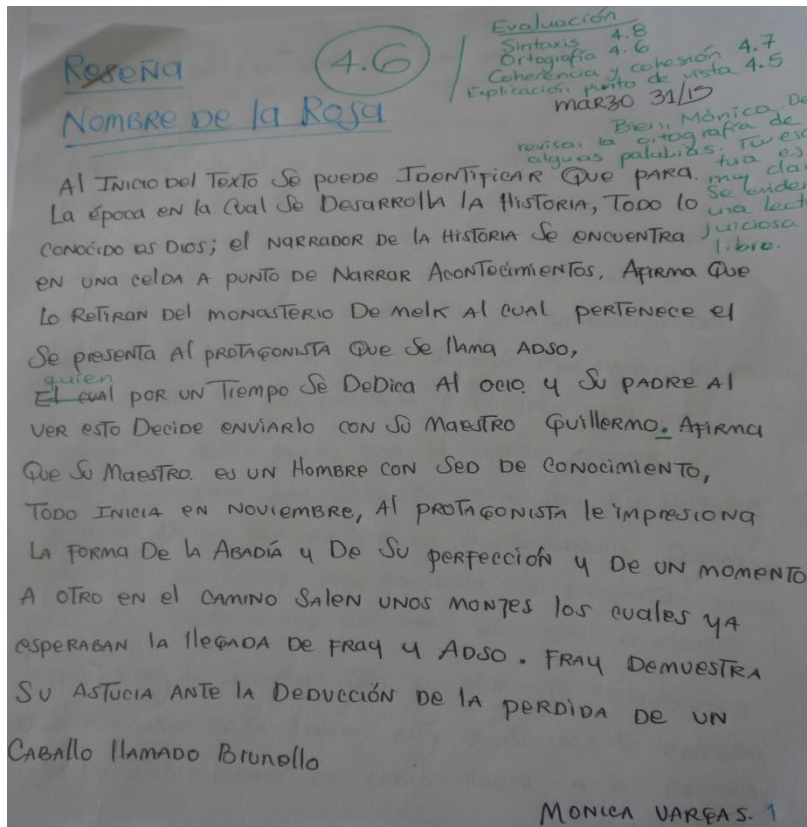 Reseña
Nombre De la Rosa
4.6
Evaluación
Sintaxis 4.8
Ortografía 4.6
Coherencia y cohesión 4.7
Explicación punto de vista 4.5
marzo 31/15
Bien, Mónica. De
revisar la ortografía de
algunas palabras. Tu esc
tura es
muy cla
Se eviden
una lect
juiciosa
libro.
Al Inicio Del Texto Se puede Identificar Que para
La época en la cual Se Desarrolla la Historia, Todo lo
conocido es Dios; el narrador De la Historia Se encuentra
en una celda a punto De Narrar Acontecimientos, Afirma Que
Lo Retiran Del monasterio De melk Al cual pertenece el
Se presenta Al protagonista Que Se llama Adso,
quien
El cual por un Tiempo Se Dedica Al ocio y Su padre Al
ver esto Decide enviarlo con Su Maestro Guillermo. Afirma
Que Su Maestro es un Hombre con Sed De Conocimiento,
Todo Inicia en Noviembre, Al protagonista le impresiona
La Forma De la Abadía y De Su perfección y De un momento
A otro en el camino Salen unos monjes los cuales ya
esperaban la llegada De Fray y Adso. Fray Demuestra
Su Astucia Ante la Deducción De la perdida De un
Caballo llamado Brunello
Monica Vargas. 1